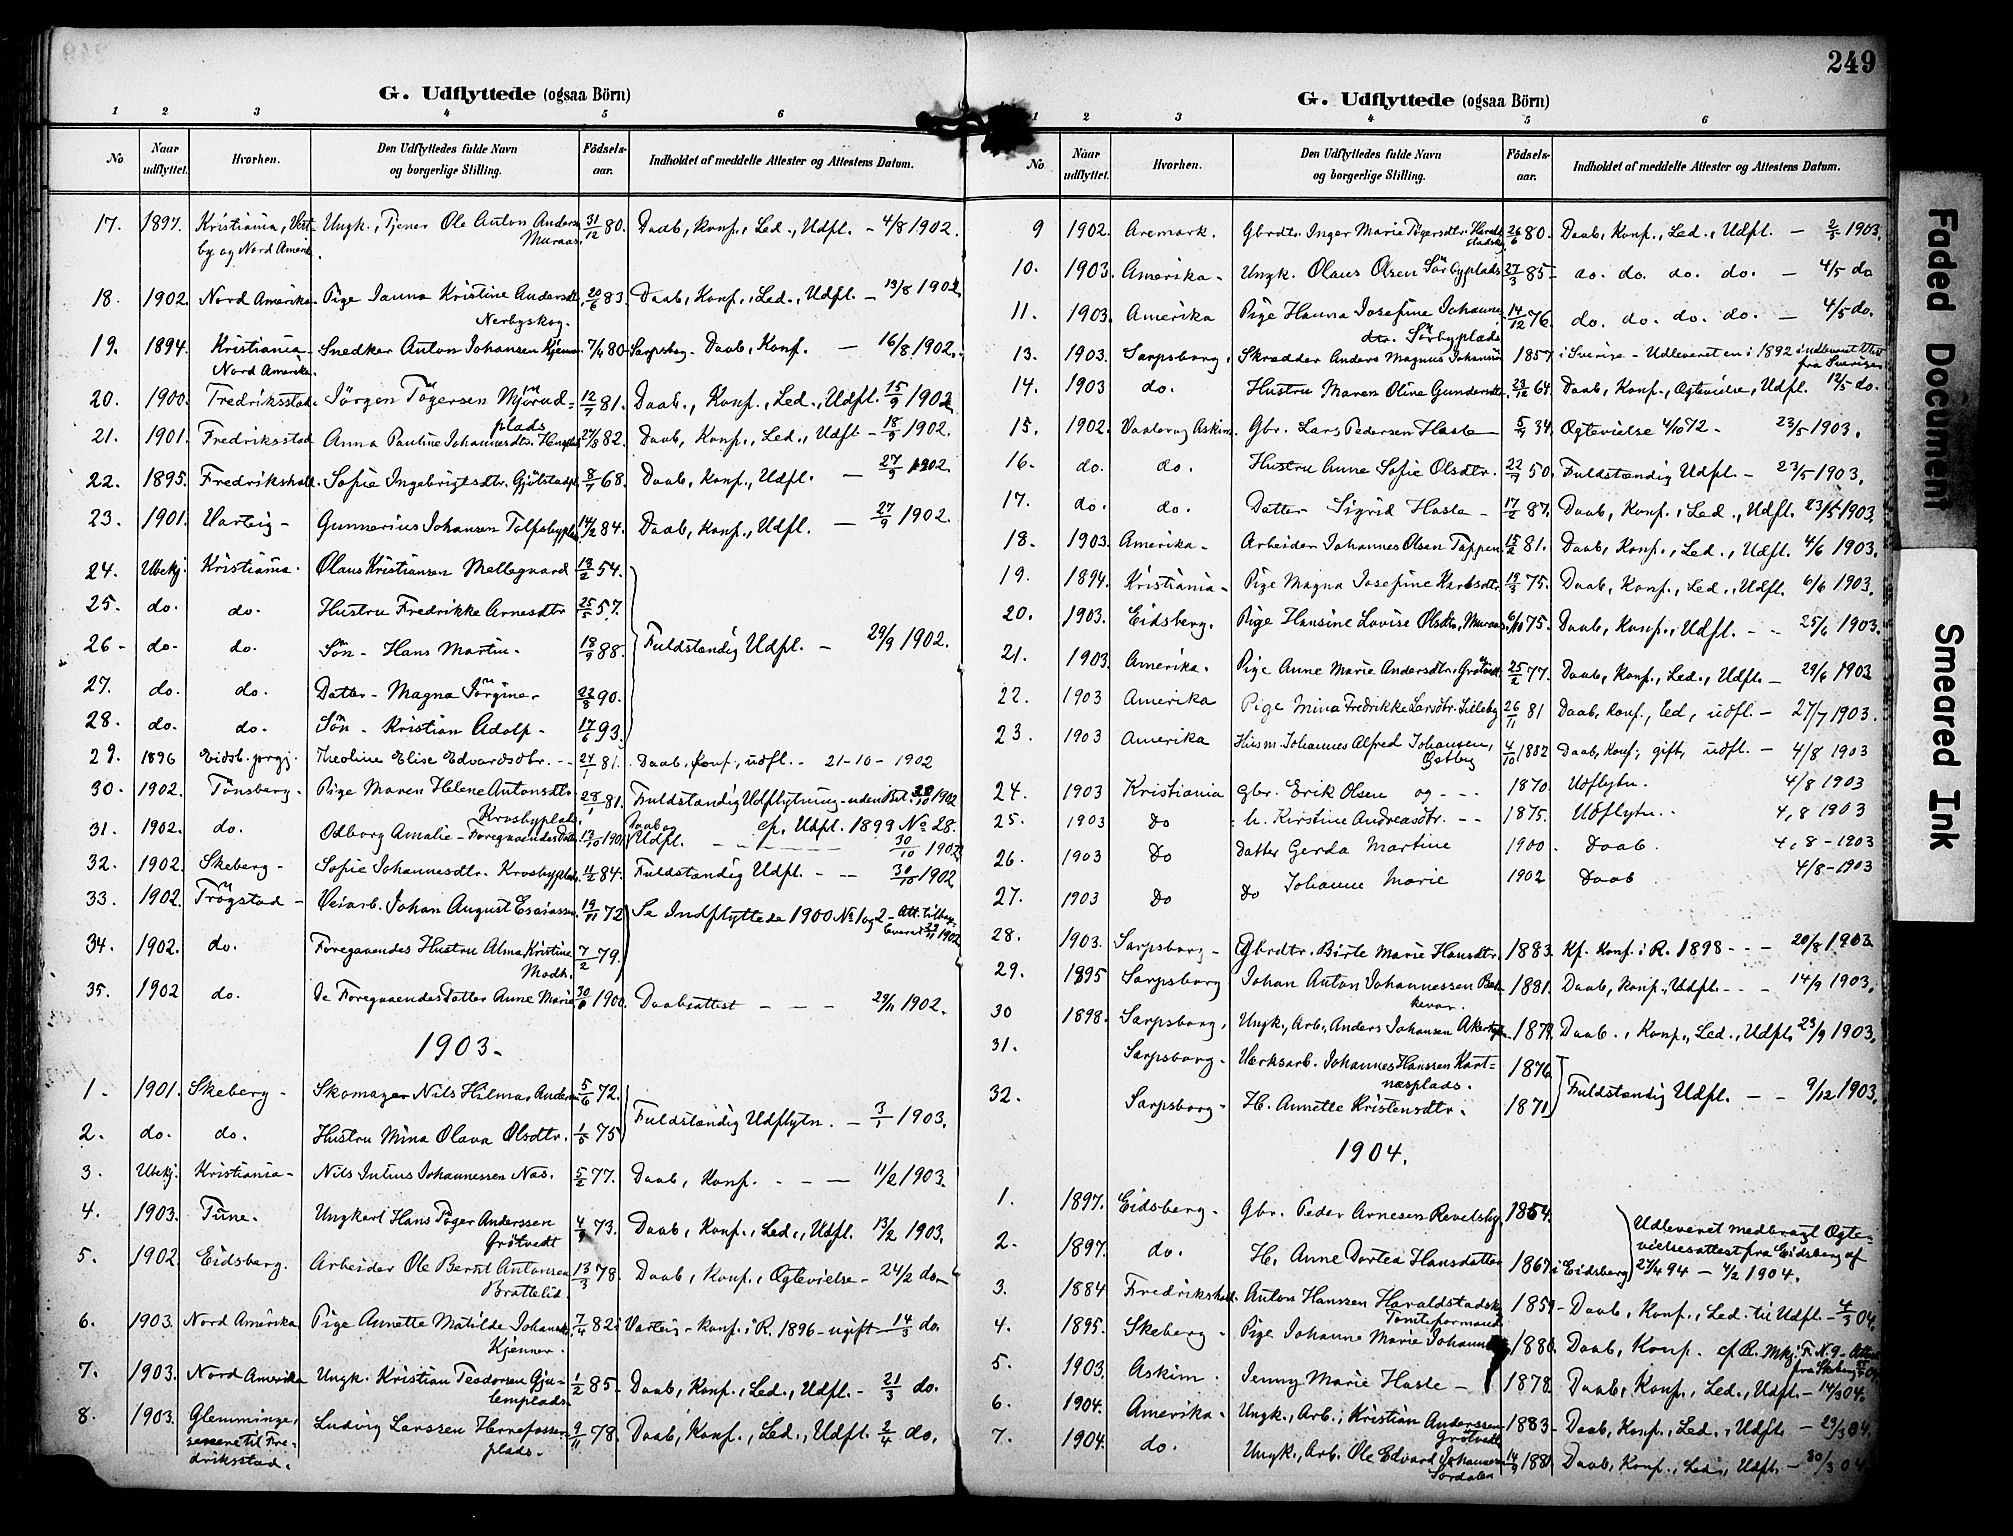 249
G. Udflyttede (ogsaa Börn)
1 2 3 4 5 6
No Naar udflyttet. Hvorhen. Den Udflyttedes fulde Navn og borgerlige Stilling. Födsels-aar. Indholdet af meddelte Attester og Attestens Datum.
17. 1897. Kristiania, Vest- Ungk., Tjener Ole Anton Anders. 31/12 80. Daab, Konf., Led., Udfl. - 4/8 1902.
by og Nord Amerik. Muraas.
18. 1902. Nord Amerika. Pige Janna Kristine Andersdtr. 20/6 83. Daab, Konf., Led., Udfl. - 13/8 1902.
Nerbyskog.
19. 1894. Kristiania - Snedker Anton Johansen 80 - Sarpsborg. Daab, Konf. - 16/8 1902.
Nord Amerika.
20. 1900. Fredriksstad. Jörgen Tögersen Mjörud= 12/7 81. Daab., Konf., Led., Udfl. 15/9 1902
plads
21. 1901. Fredriksstad Anna Pauline Johannesdtr. 82. Daab, Konf., Led., Udfl - 18/9 1902.
22. 1895. Fredrikshald. Sofie Ingebrigtsdtr. 68. Daab, Konf., Udfl. - 27/9 1902.
23. 1901. Varteig - Gunnerius Johansen 14/2 84. Daab, Konf., Udfl. - 27/9 1902.
24. Ubekj. Kristiania. Olaus Kristiansen Mellegaard 13/2 54.
25. do. do. Hustru Fredrikke Arnesdtr 25/5 57.
26 - do. do. Sön - Hans Martin - 18/9 88. Fuldstændig Udfl. - 29/9 1902.
27. do. do. Datter - Magna Jörgine - 90.
28. do. do. Sön - Kristian Adolf - 17/6 93.
29. 1896 Eidsb. prgj. Theoline Elise Edvardsdtr. - - 81. Daab, konf., udfl. - 21-10-1902
30. 1902. Tönsberg. Pige Maren Helene Antonsdtr. 28/1 81. Fuldstændig Udflytning - 1902
Krosbyplads. cfr. Udfl. 1899 No 28.
31. 1902. do. Odborg Amalie - Foregaaendes Datter. 13/10 1901 Daab og Udfl. - - 30/10 1902
32. 1902. Skeberg - Sofie Johannesdtr. Krosbyplads. 84. Fuldstændig Udfl. - - 30/10 1902
33. 1902. Trögstad - Veiarb. Johan August Esaiassen. 19/11 72 Se Indflyttede 1900 No 1 og 2 - 1902
34. 1902. do. Foregaaendes Hustru Alma Kristine 7/2 79.
35. 1902 do. De Foregaaendes Datter Anne Marie 1900. Daabsattest - - - 29/11 1902.
1903.
1. 1901. Skeberg - Skomager Nils Hilmar Anders. 5/6 72.
Fuldstændig Udflytn. - 3/1 1903.
2. do. do. Hustru Mina Olava Olsdtr. 75
3. Ubekj. Kristiania - Nils Julius Johannessen Næs. 5/2 77. Daab, Konf. - - - 11/2 1903.
4. 1903. Tune. Ungkarl Hans Töger Anderssen 73. Daab, Konf., Led., Udfl. 13/2 1903.
Grötvedt
5. 1902. Eidsberg. Arbeider Ole Bernt Antonsen 13/3 78. Daab, Konf., Ogtevielse - 24/2 do -
Brattelid.
6. 1903. Nord Amerika Pige Annette Matilde Johansdtr. 7/4 82 i Varteig - Konf. i R. 1896 - ugift - 14/3 do.
Kjenner.
7. 1903. Nord Amerika Ungk. Kristian Teodorsen 1/2 85 - Daab, Konf., Led., Udfl. - 21/3 do.
8. 1903. Glemminge, Ludvig Larssen 9/11 78. Daab, Konf., Led., Udfl. 2/4 do.
senere til Fre- plads.
driksstad.
G. Udflyttede (ogsaa Börn)
1 2 3 4 5 6
No Naar udflyttet. Hvorhen. Den Udflyttedes fulde Navn og borgerlige Stilling. Födsels-aar. Indholdet af meddelte Attester og Attestens Datum.
9 1902. Aremark. Gbrdtr. Inger Marie Tögersdtr. 26/6 80. Daab, Konf., Led., Udfl. - 1903.
10. 1903. Amerika - Ungk. Olaus Olsen Sörbyplads 27/3 85 - do. do. do. do. - 4/5 do
11. 1903. Amerika Pige Hanna Josefine Johanne- 14/12 76. do. do. do. do. - 4/5 do.
dtr. Sörbyplads
13. 1903. Sarpsborg. Skrædder Anders Magnus Johansen 1857. i Sverige - Udleveret en i 1892 indleveret Attest
fra Sverige
14. 1903 do. Hustru Maren Oline Gundersdtr. 23/12 64. Daab, Konf., Ogtevielse, Udfl. 12/5 do.
15. 1902. Vaaler og Askim. Gbr. Lars Pedersen Hasle 34. Ogtevielse 4/10 72 - 23/5 1903.
16. do. do. Hustru Anne Sofie Olsdtr. 50. Fuldstændig Udfl. - 23/5 1903.
17. do. do. Datter Sigrid Hasle - 17/2 87. Daab, Konf., Led., Udfl. 23/5 1903.
18. 1903. Amerika - Arbeider Johannes Olsen Tappen 15/2 81. Daab, Konf., Led., Udfl. 4/6 1903.
19. 1894. Kristiania - Pige Magna Josefine Karlsdtr. 19/3 75. Daab, Konf., Led., Udfl. 6/6 1903.
20. 1903. Eidsberg. Pige Hansine Lovise Olsdtr. Muraas. 6/10 75. Daab, Konf., Udfl. - - 25/6 1903.
21. 1903. Amerika. Pige Anne Marie Andersdtr. Grötvedt. 25/2 77. Daab, Konf., Led., Udfl. - 29/6 1903
22. 1903 Amerika Pige Mina Fredrikke Larsdtr. Lilleby 26/11 81 Daab, konf., Led, udfl. - 27/7 1903.
23. 1903 Amerika Husm. Johannes Alfred Johansen, 4/10 1882 Daab, Konf., gift, udfl. - 4/8 1903
Østby
24. 1903 Kristiania Gbr. Erik Olsen og - - - 1870. Udflytn. 4/8 1903
25. 1903 Do h. Kirstine Andreasdtr. - - 1875. Udflytn. . 4/8 1903
26. 1903 Do Datter Gerda Martine 1900. Daab. 4/8-1903
27. 1903 Do Do Johanne Marie 1902 Daab 4/8-1903
28. 1903. Sarpsborg - Gbrdtr. Birte Marie Hansdtr. 1883. Kf. Konf. i R. 1898 - - - 20/8 1903
29. 1895 Sarpsborg Johan Anton Johannessen Bek- 1881. Daab, Konf., Udfl. - - - 14/9 1903.
kevar.
30 1898. Sarpsborg. Ungk., Arb., Anders Johansen 1879. Daab., Konf., Led., Udfl. 23/9 1903.
31. Sarpsborg - Værksarb. Johannes Hanssen Kort= 1876
næsplads.
Fuldstændig Udfl. - - 9/12 1903.
32. Sarpsborg - H. Annette Kristensdtr. 1871
1904.
1. 1897. Eidsberg - Gbr. Peder Arnesen Revelsby 1854.
Udleveret medbragt Ogte=
2. 1897. do. H. Anne Dortea Hansdatter 1867 i Eidsberg vielsesattest fra Eidsberg af
27/4 94 - 4/2 1904.
3. 1884 Fredrikshald. Anton Hanssen Haraldstadskog 1859 - Daab, Konf., Led. til Udfl. - 4/3 04.
Tomteformand
4. 1895. Skeberg - Pige Johanne Marie 1880. Daab, Konf. cf. R. Mkj. F. N. 9 - Attest
fra Skeberg
5. 1903. Askim. Jenny Marie Hasle - 1878 Daab, Konf., Led., Udfl. - 14/3 04.
6. 1904. Amerika. Ungk., Arb., Kristian Anderssen 1883 - Daab, Konf., Led., Udfl. - 23/3 04.
Grötvedt
7. 1904. do. Ungk., Arb. Ole Edvard Johannesen 1881 Daab, Konf., Led., Udfl. - 30/3 04.
Sordalen
Faded Document
Smeared Ink